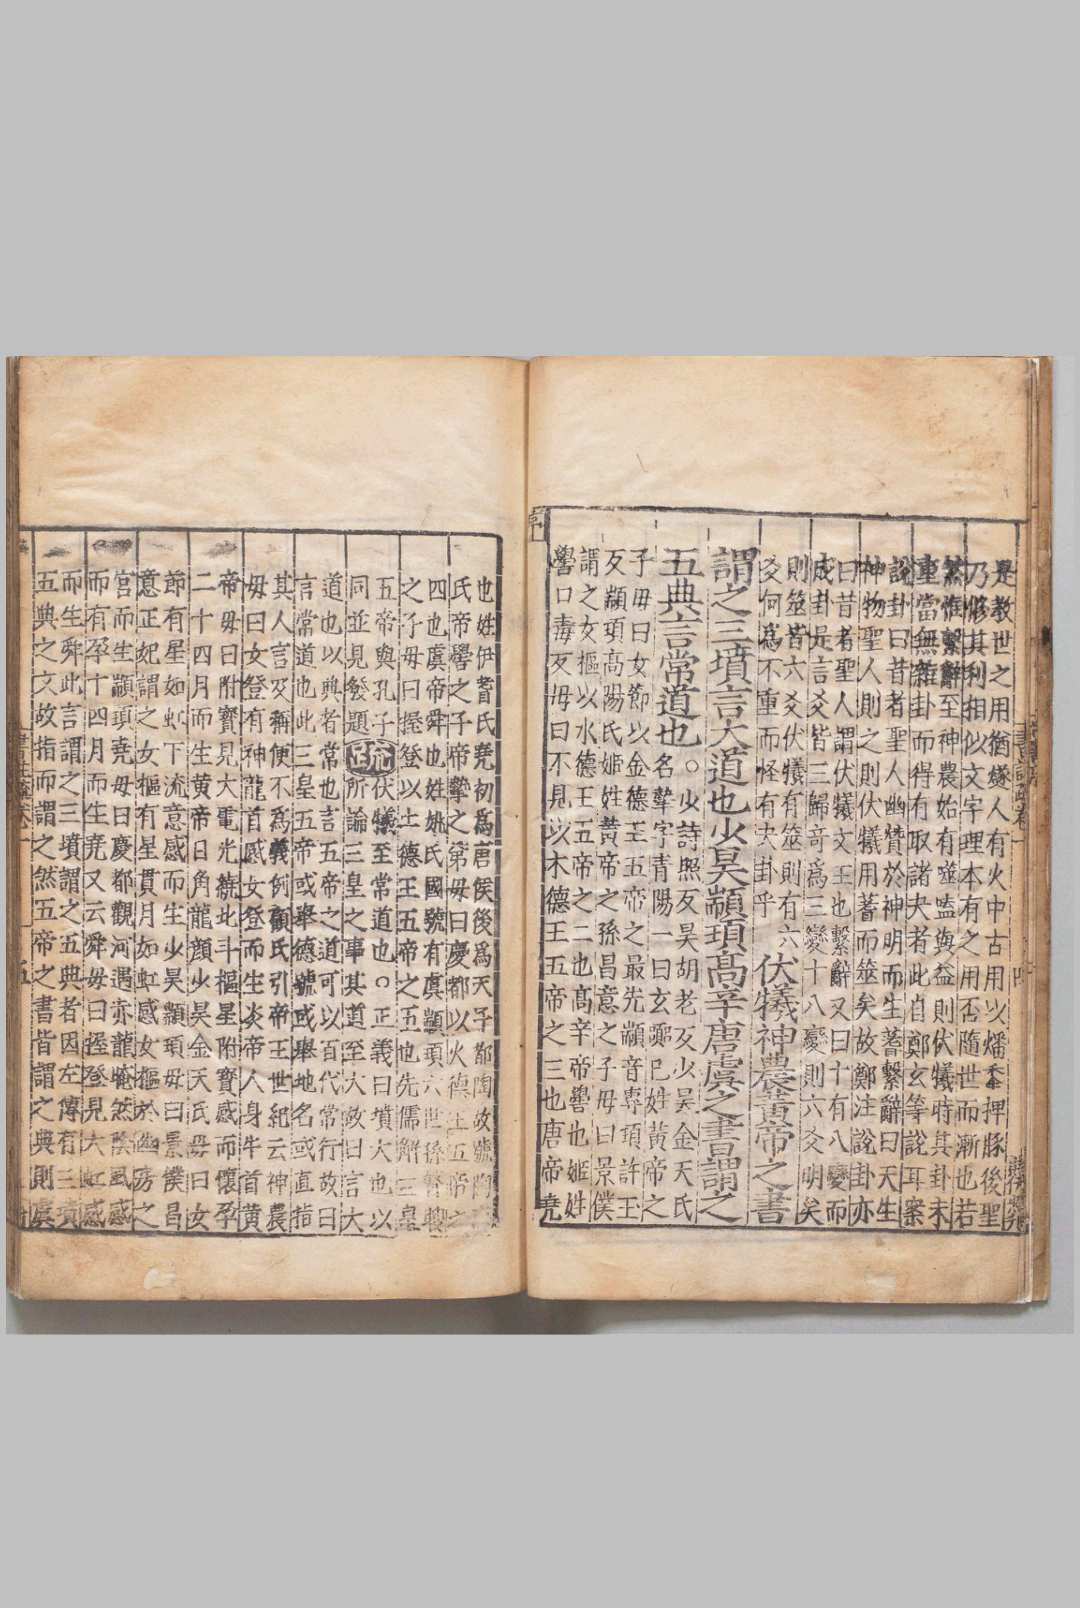 是教世之用猶燧人有火中古用以燔黍捭豚後聖
乃修其利相似文字理本有之用否隨世而漸也若
然惟繫辭至神農始有噬嗑與益則伏犧時其卦未
重當無雜卦而得有取諸夬者此自鄭玄等說耳案
說卦曰昔者聖人幽贊於神明而生蓍繫辭曰天生
神物聖人則之則伏犧用蓍而筮矣故鄭注說卦亦
曰昔者聖人謂伏犧文王也繫辭又曰十有八變而
成卦是言爻皆三歸奇為三變十八變則六爻明矣
則筮皆六爻伏犧有筮則有六
爻何為不重而怪有夬卦乎
伏犧神農黃帝之書
謂之三墳言大道也少昊顓頊高辛唐虞之書謂之
五典言常道也
少詩照反昊胡老反少昊金天氏
名摯字青陽一曰玄囂已姓黃帝之
子母曰女節以金德王五帝之最先顓音專頊許玉
反顓頊高陽氏姬姓黃帝之孫昌意之子母曰景僕
謂之女樞以水德王五帝之二也高辛帝嚳也姬姓
嚳口毒反母曰不見以木德王五帝之三也唐帝堯
也姓伊耆氏堯初為唐侯後為天子都陶故號陶唐
氏帝嚳之子帝摯之弟母曰慶都以火德王五帝之
四也虞帝舜也姓姚氏國號有虞顓頊六世孫瞽瞍
之子母曰握登以土德王五帝之五也先儒解三皇
五帝與孔子
同並見發題
疏
伏犧至常道也○正義曰墳大也以
所論三皇之事其道至大故曰言大
道也以典者常也言五帝之道可以百代常行故曰
言常道也此三皇五帝或舉德號或舉地名或直指
其人言及稱便不為義例顧氏引帝王世紀云神農
母曰女登有神龍首感女登而生炎帝人身牛首黃
帝母曰附寶見大電光繞北斗樞星附寶感而懷孕
二十四月而生黃帝日角龍顏少昊金天氏母曰女
節有星如虹下流意感而生少昊顓頊母曰景僕昌
意正妃謂之女樞有星貫月如虹感女樞於幽房之
宮而生顓頊堯母曰慶都觀河遇赤龍晻然陰風感
而有孕十四月而生堯又云舜母曰握登見大虹感
而生舜此言謂之三墳謂之五典者因左傳有三墳
五典之文故指而謂之然五帝之書皆謂之典則虞